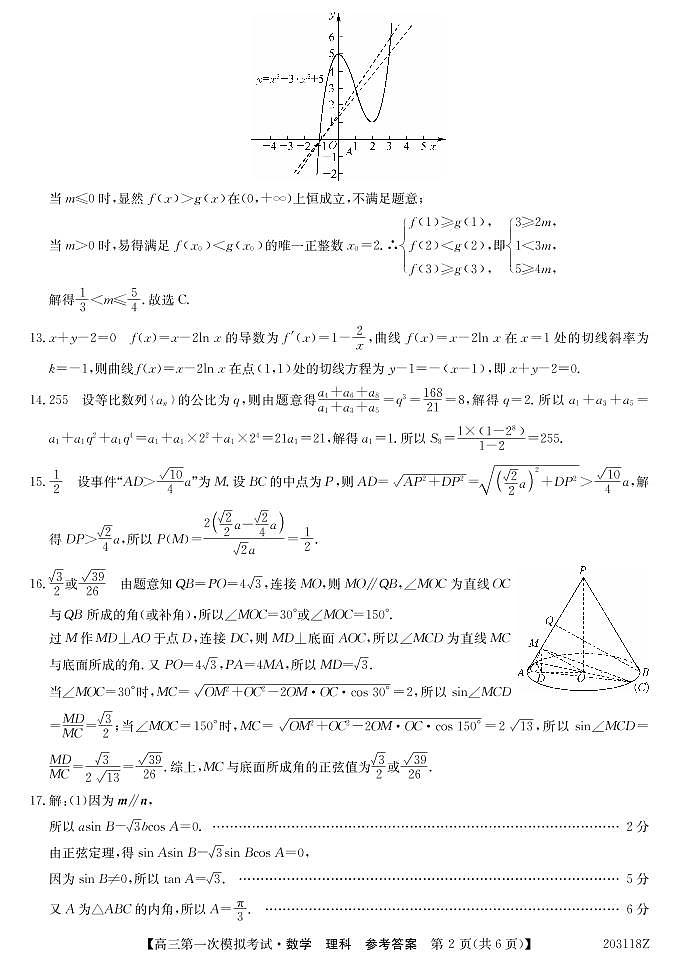 y
6
5
4
3
2
1
y=x³-3·x²+5
-4 -3 -2 -1 O 1 2 3 4 5 x
A
-1
-2
当 m≤0 时,显然 f(x)>g(x)在(0,+∞)上恒成立,不满足题意;
当 m>0 时,易得满足 f(x₀)<g(x₀)的唯一正整数 x₀=2. ∴{f(1)≥g(1), f(2)<g(2), f(3)≥g(3), 即{3≥2m, 1<3m, 5≥4m,
解得1/3<m≤5/4. 故选 C.
13. x+y-2=0 f(x)=x-2ln x 的导数为 f′(x)=1-2/x,曲线 f(x)=x-2ln x 在 x=1 处的切线斜率为
k=-1,则曲线f(x)=x-2ln x 在点(1,1)处的切线方程为 y-1=-(x-1),即 x+y-2=0.
14. 255 设等比数列{aₙ}的公比为 q,则由题意得(a₄+a₆+a₈)/(a₁+a₃+a₅)=q³=168/21=8,解得 q=2. 所以 a₁+a₃+a₅=
a₁+a₁q²+a₁q⁴=a₁+a₁×2²+a₁×2⁴=21a₁=21,解得 a₁=1. 所以 S₈=1×(1-2⁸)/(1-2)=255.
15. 1/2 设事件“AD>√10/4 a”为 M. 设 BC 的中点为 P,则 AD=√(AP²+DP²)=√((√2/2 a)²+DP²)>√10/4 a,解
得 DP>√2/4 a,所以 P(M)=2(√2/2 a-√2/4 a)/(√2a)=1/2.
16. √3/2或√39/26 由题意知 QB=PO=4√3,连接 MO,则 MO∥QB,∠MOC 为直线 OC
与 QB 所成的角(或补角),所以∠MOC=30°或∠MOC=150°.
过 M 作 MD⊥AO 于点 D,连接 DC,则 MD⊥底面 AOC,所以∠MCD 为直线 MC
与底面所成的角. 又 PO=4√3,PA=4MA,所以 MD=√3.
当∠MOC=30°时,MC=√(OM²+OC²-2OM·OC·cos 30°)=2,所以 sin∠MCD
=MD/MC=√3/2;当∠MOC=150°时,MC=√(OM²+OC²-2OM·OC·cos 150°)=2√13,所以 sin∠MCD=
MD/MC=√3/(2√13)=√39/26. 综上,MC 与底面所成角的正弦值为√3/2或√39/26.
P
Q
M
A
D
O
B
(C)
17. 解:(1)因为 m∥n,
所以 asin B-√3bcos A=0. ………… 2 分
由正弦定理,得 sin Asin B-√3sin Bcos A=0,
因为 sin B≠0,所以 tan A=√3. ………… 5 分
又 A 为△ABC 的内角,所以 A=π/3. ………… 6 分
【高三第一次模拟考试·数学 理科 参考答案 第 2 页(共 6 页)】 203118Z